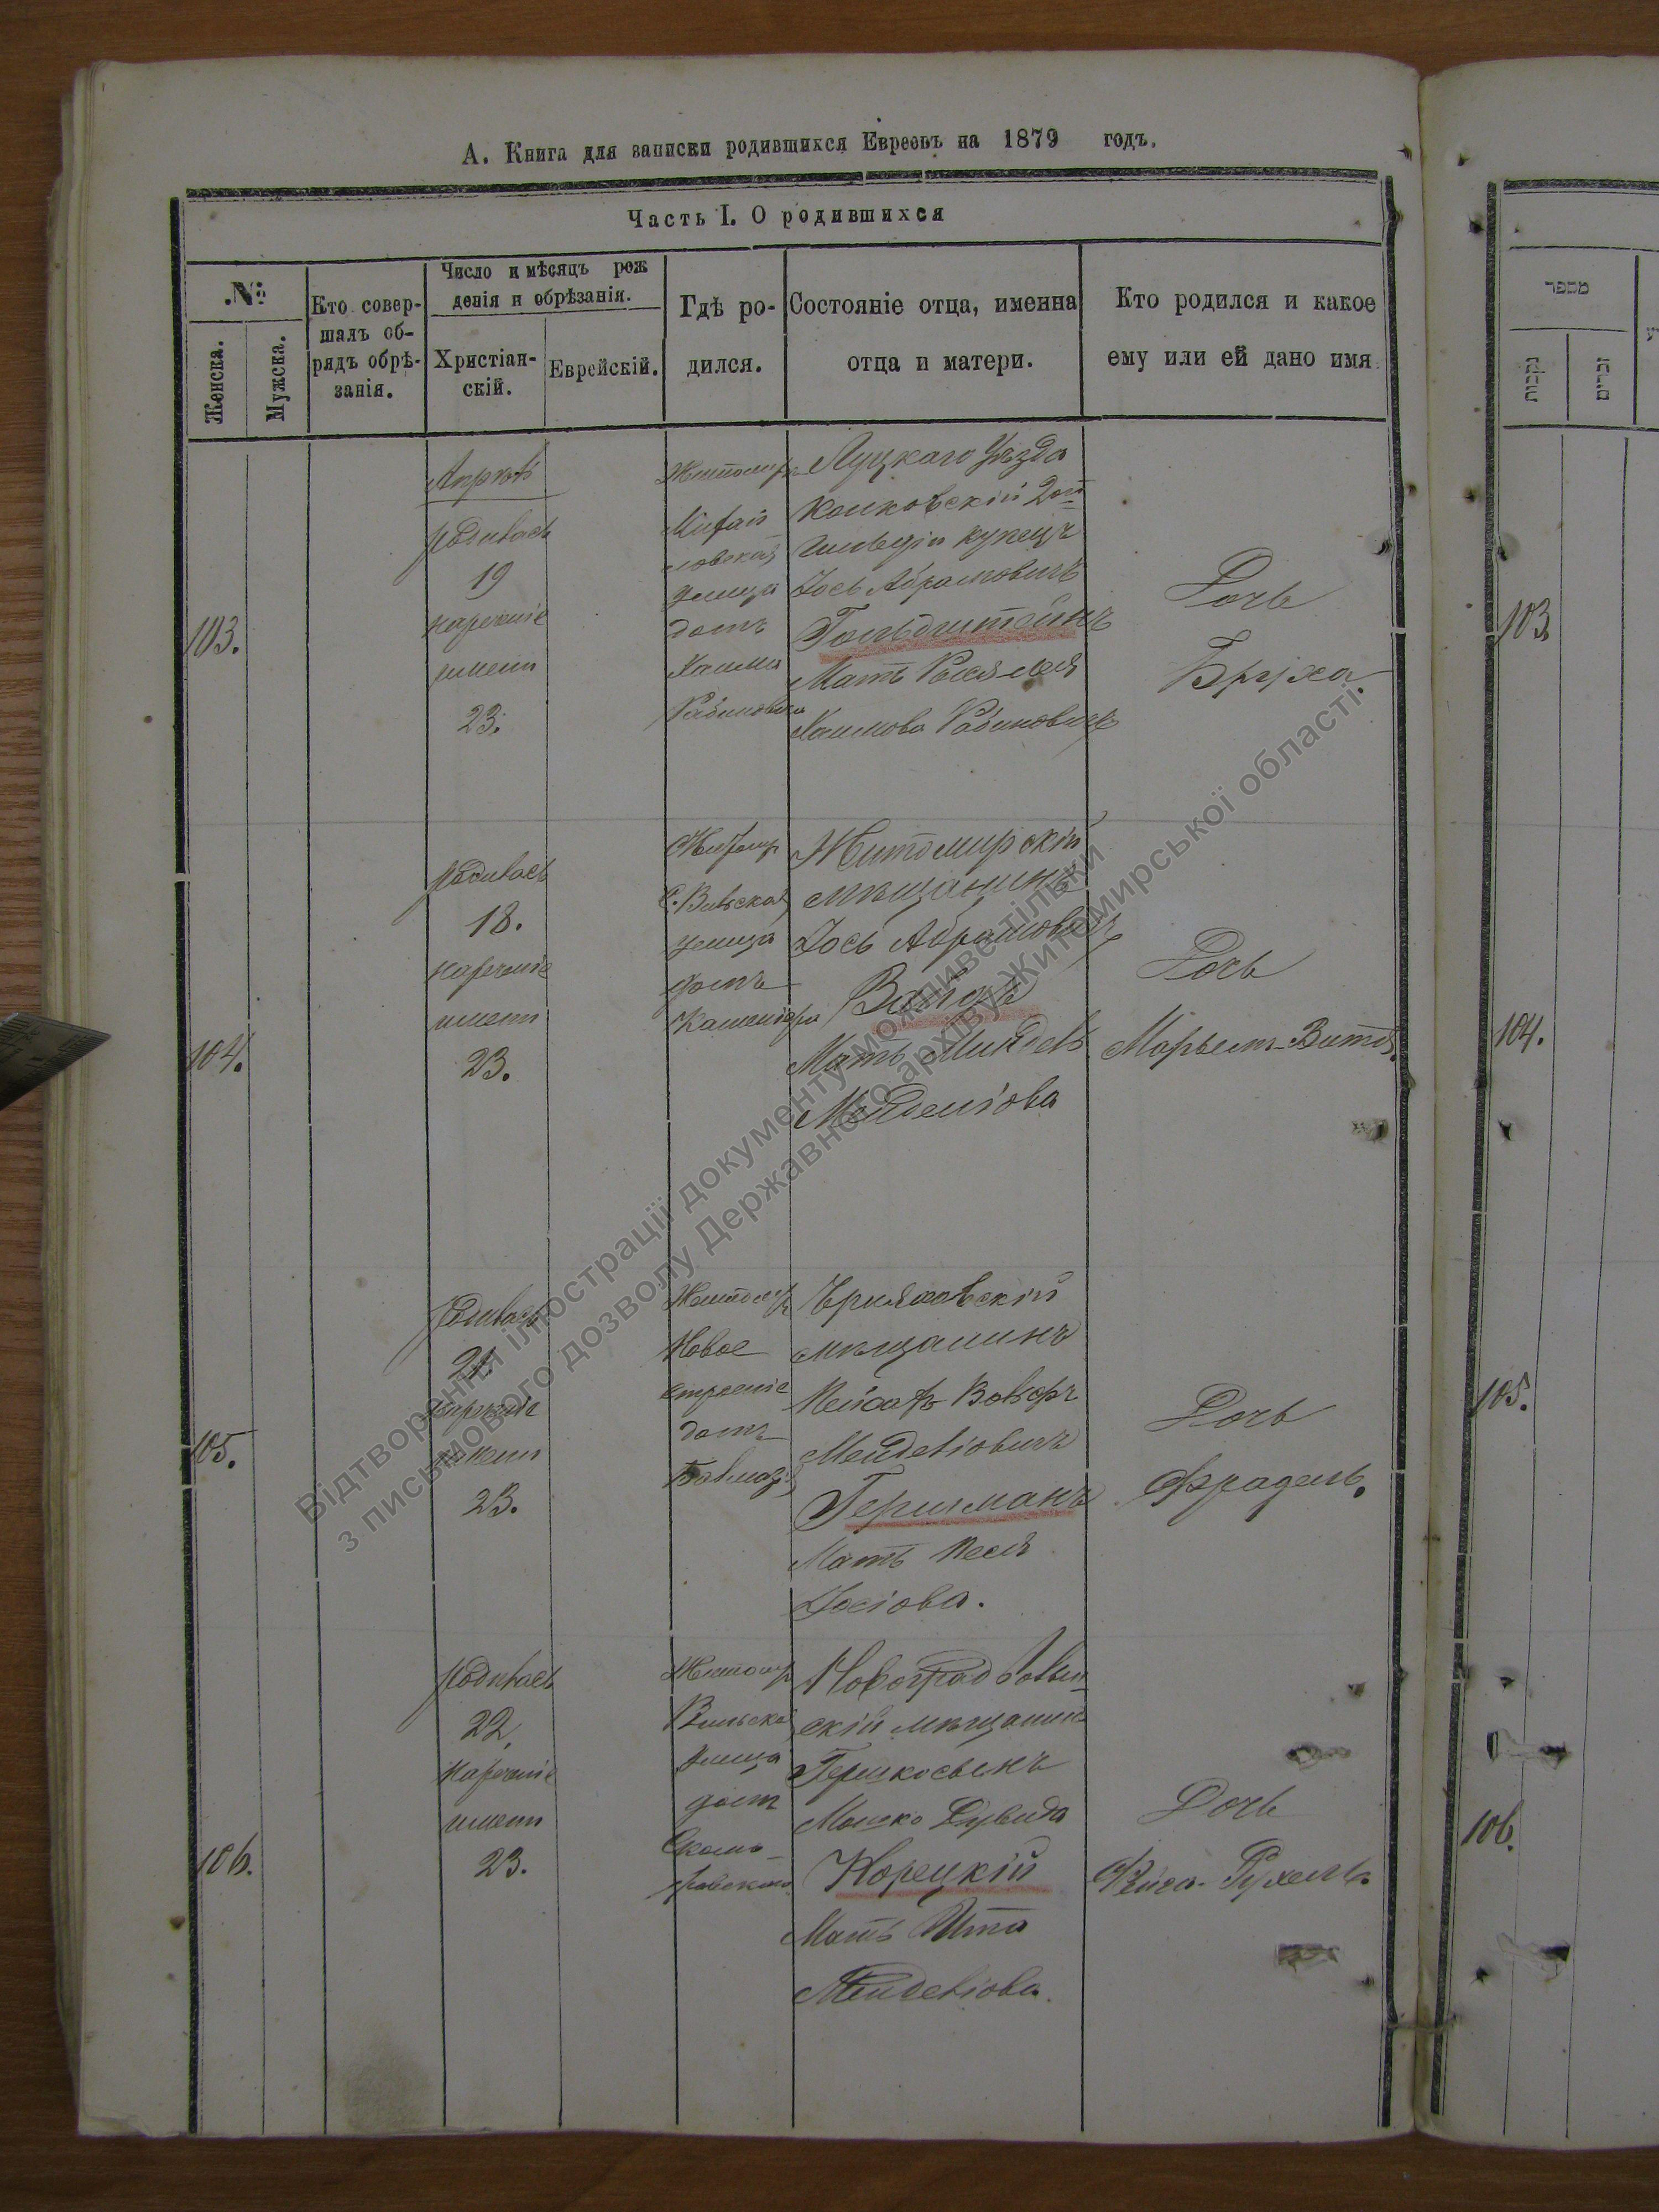 А. Книга для записки родившихся Евреевъ на 1879 годъ.
Часть I. О родившихся
№
Женска.
Мужска.
Кто совер-
шалъ об-
рядъ обрѣ-
занія.
Число и мѣсяцъ рож
денія и обрѣзанія.
Христіан-
скій.
Еврейскій.
Гдѣ ро-
дился.
Состояніе отца, именна
отца и матери.
Кто родился и какое
ему или ей дано имя
103.
Апрѣль
родилась
19
нареченіе
имени
23.
Житомиръ
Михай
ловская
улица
домъ
Хаима
Рабиновича
Луцкаго Уѣзда
Колковскій 2ой
гильдіи купецъ
Іось Абрамовичъ
Гольдштейнъ
Мать Рейзя-Лея
Хаимова Рабиновичъ
Дочь
Бруха.
104.
родилась
18.
нареченіе
имени
23.
Житомир
С. Вильская
улица
домъ
Житомирскій
мѣщанинъ
Іось Абрамовичъ
Мать Миндель
Менделіова
Дочь
Марьем-Витя.
105.
родилась
21
нареченіе
имени
23.
Житомиръ
Новое
строеніе
домъ
Черняховскій
мѣщанинъ
Пейсахъ Вольфъ
Менделіовичъ
Гершманъ
Мать Песя
Іосіова.
Дочь
Фрадель.
106.
родилась
22.
нареченіе
имени
23.
Житомир
Вильская
улица
домъ
Новоградволын
скій мѣщанинъ
Гершкосынъ
Мошко Дувидъ
Корецкій
Мать Ита
Менделіова.
Дочь
Фейга-Рухель.
מספר
נקבות
זכרים
103.
104.
105.
106.
Відтворення ілюстрації документу можливе тільки
з письмового дозволу Державного архіву Житомирської області.